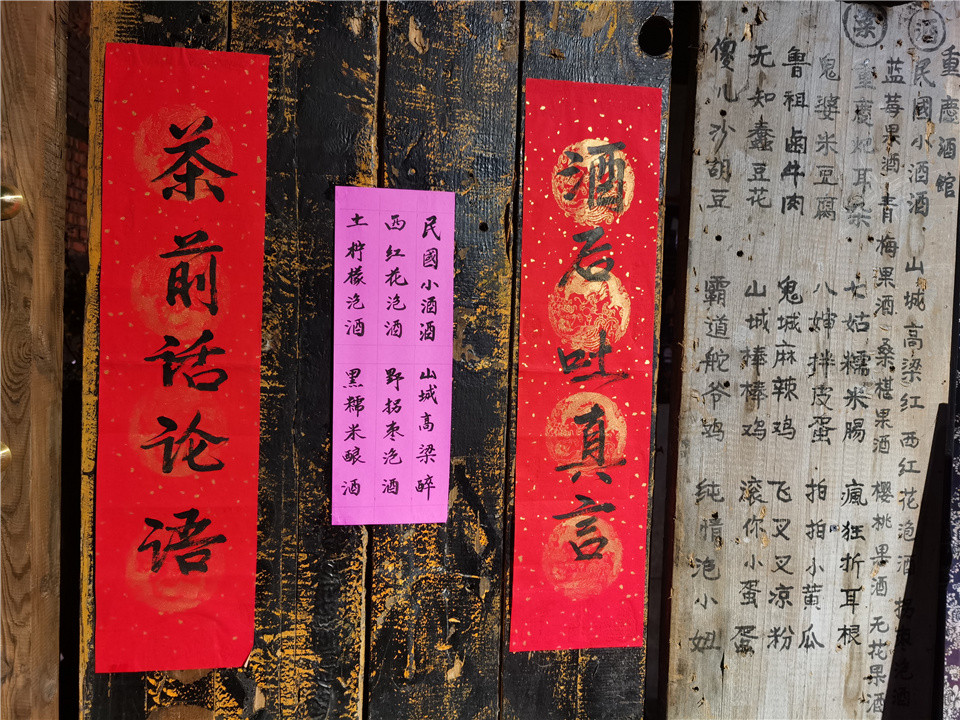 酒后吐真言
茶前话论语
民國小酒酒 山城高梁醉
西红花泡酒 野拐枣泡酒
土柠檬泡酒 黑糯米酿酒
重慶酒館
酒 民國小酒酒 山城高梁红 西红花泡酒 拐枣泡酒
蓝莓果酒 青梅果酒 桑椹果酒 樱桃果酒 无花果酒
菜 重慶妃耳朵 七姑糯米腸 瘋狂折耳根
鬼婆米豆腐 八婶拌皮蛋 拍拍小黄瓜
鲁祖卤牛肉 鬼城麻辣鸡 飞叉叉凉粉
无知蠢豆花 山城棒棒鸡 滚你小蛋蛋
傻儿沙胡豆 霸道舵爷鸡 纯情泡小妞